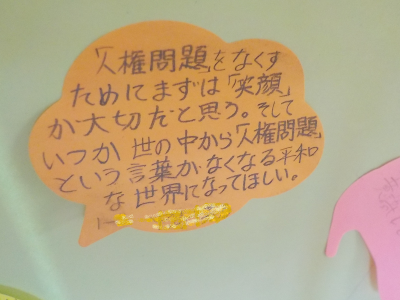 「人権問題」をなくす
ためにまずは「笑顔」
が大切だと思う。そして
いつか世の中から「人権問題」
という言葉がなくなる平和
な世界になってほしい。